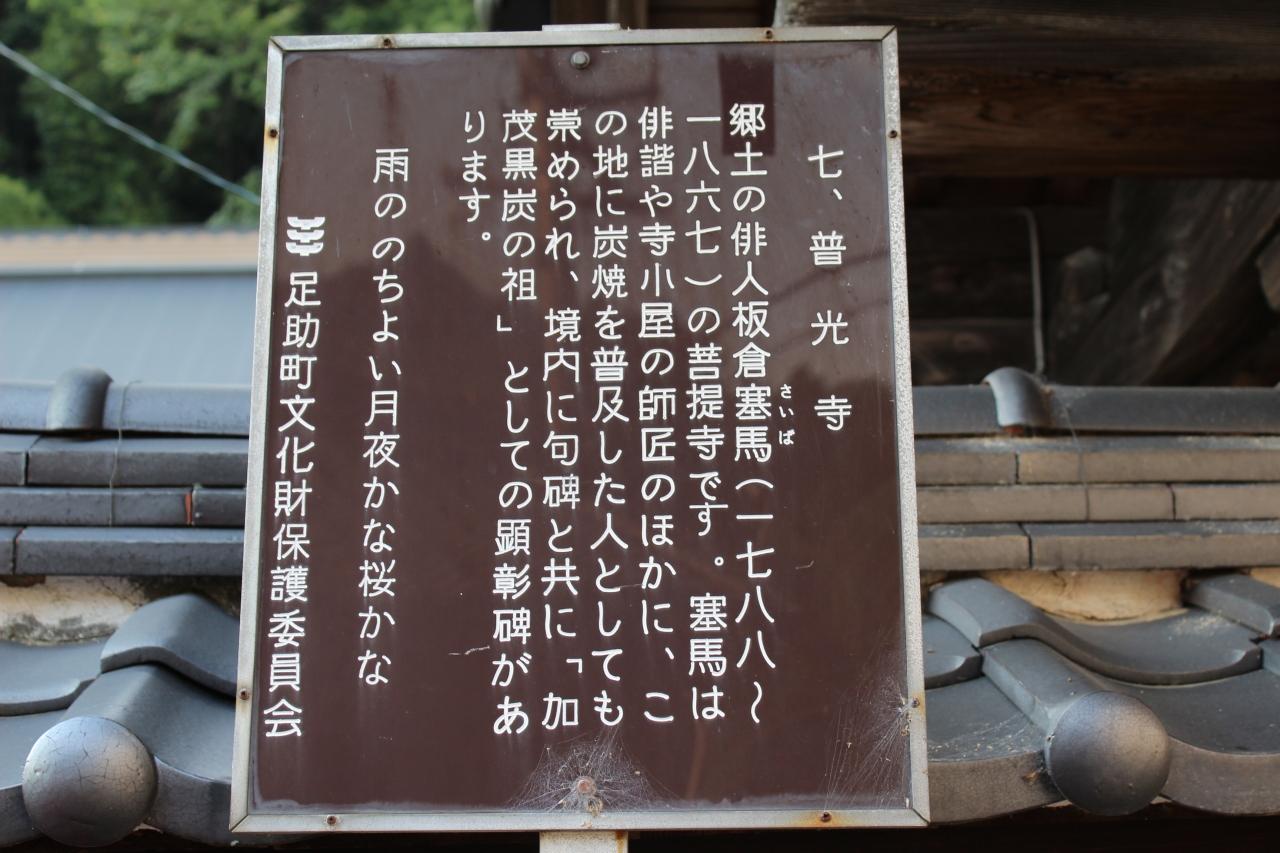 七、普光寺
郷土の俳人板倉塞馬（一七八八〜
さいば
一八六七）の菩提寺です。塞馬は
俳諧や寺小屋の師匠のほかに、こ
の地に炭焼を普及した人としても
崇められ、境内に句碑と共に「加
茂黒炭の祖」としての顕彰碑があ
ります。
雨ののちよい月夜かな桜かな
足助町文化財保護委員会